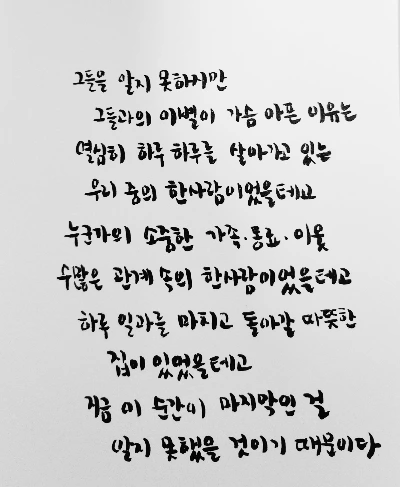 그들을 알지 못하지만
그들과의 이별이 가슴 아픈 이유는
열심히 하루 하루를 살아가고 있는
우리 중의 한사람이었을테고
누군가의 소중한 가족·동료·이웃
수많은 관계 속의 한사람이었을테고
하루 일과를 마치고 돌아갈 따뜻한
집이 있었을테고
지금 이 순간이 마지막인 걸
알지 못했을 것이기 때문이다